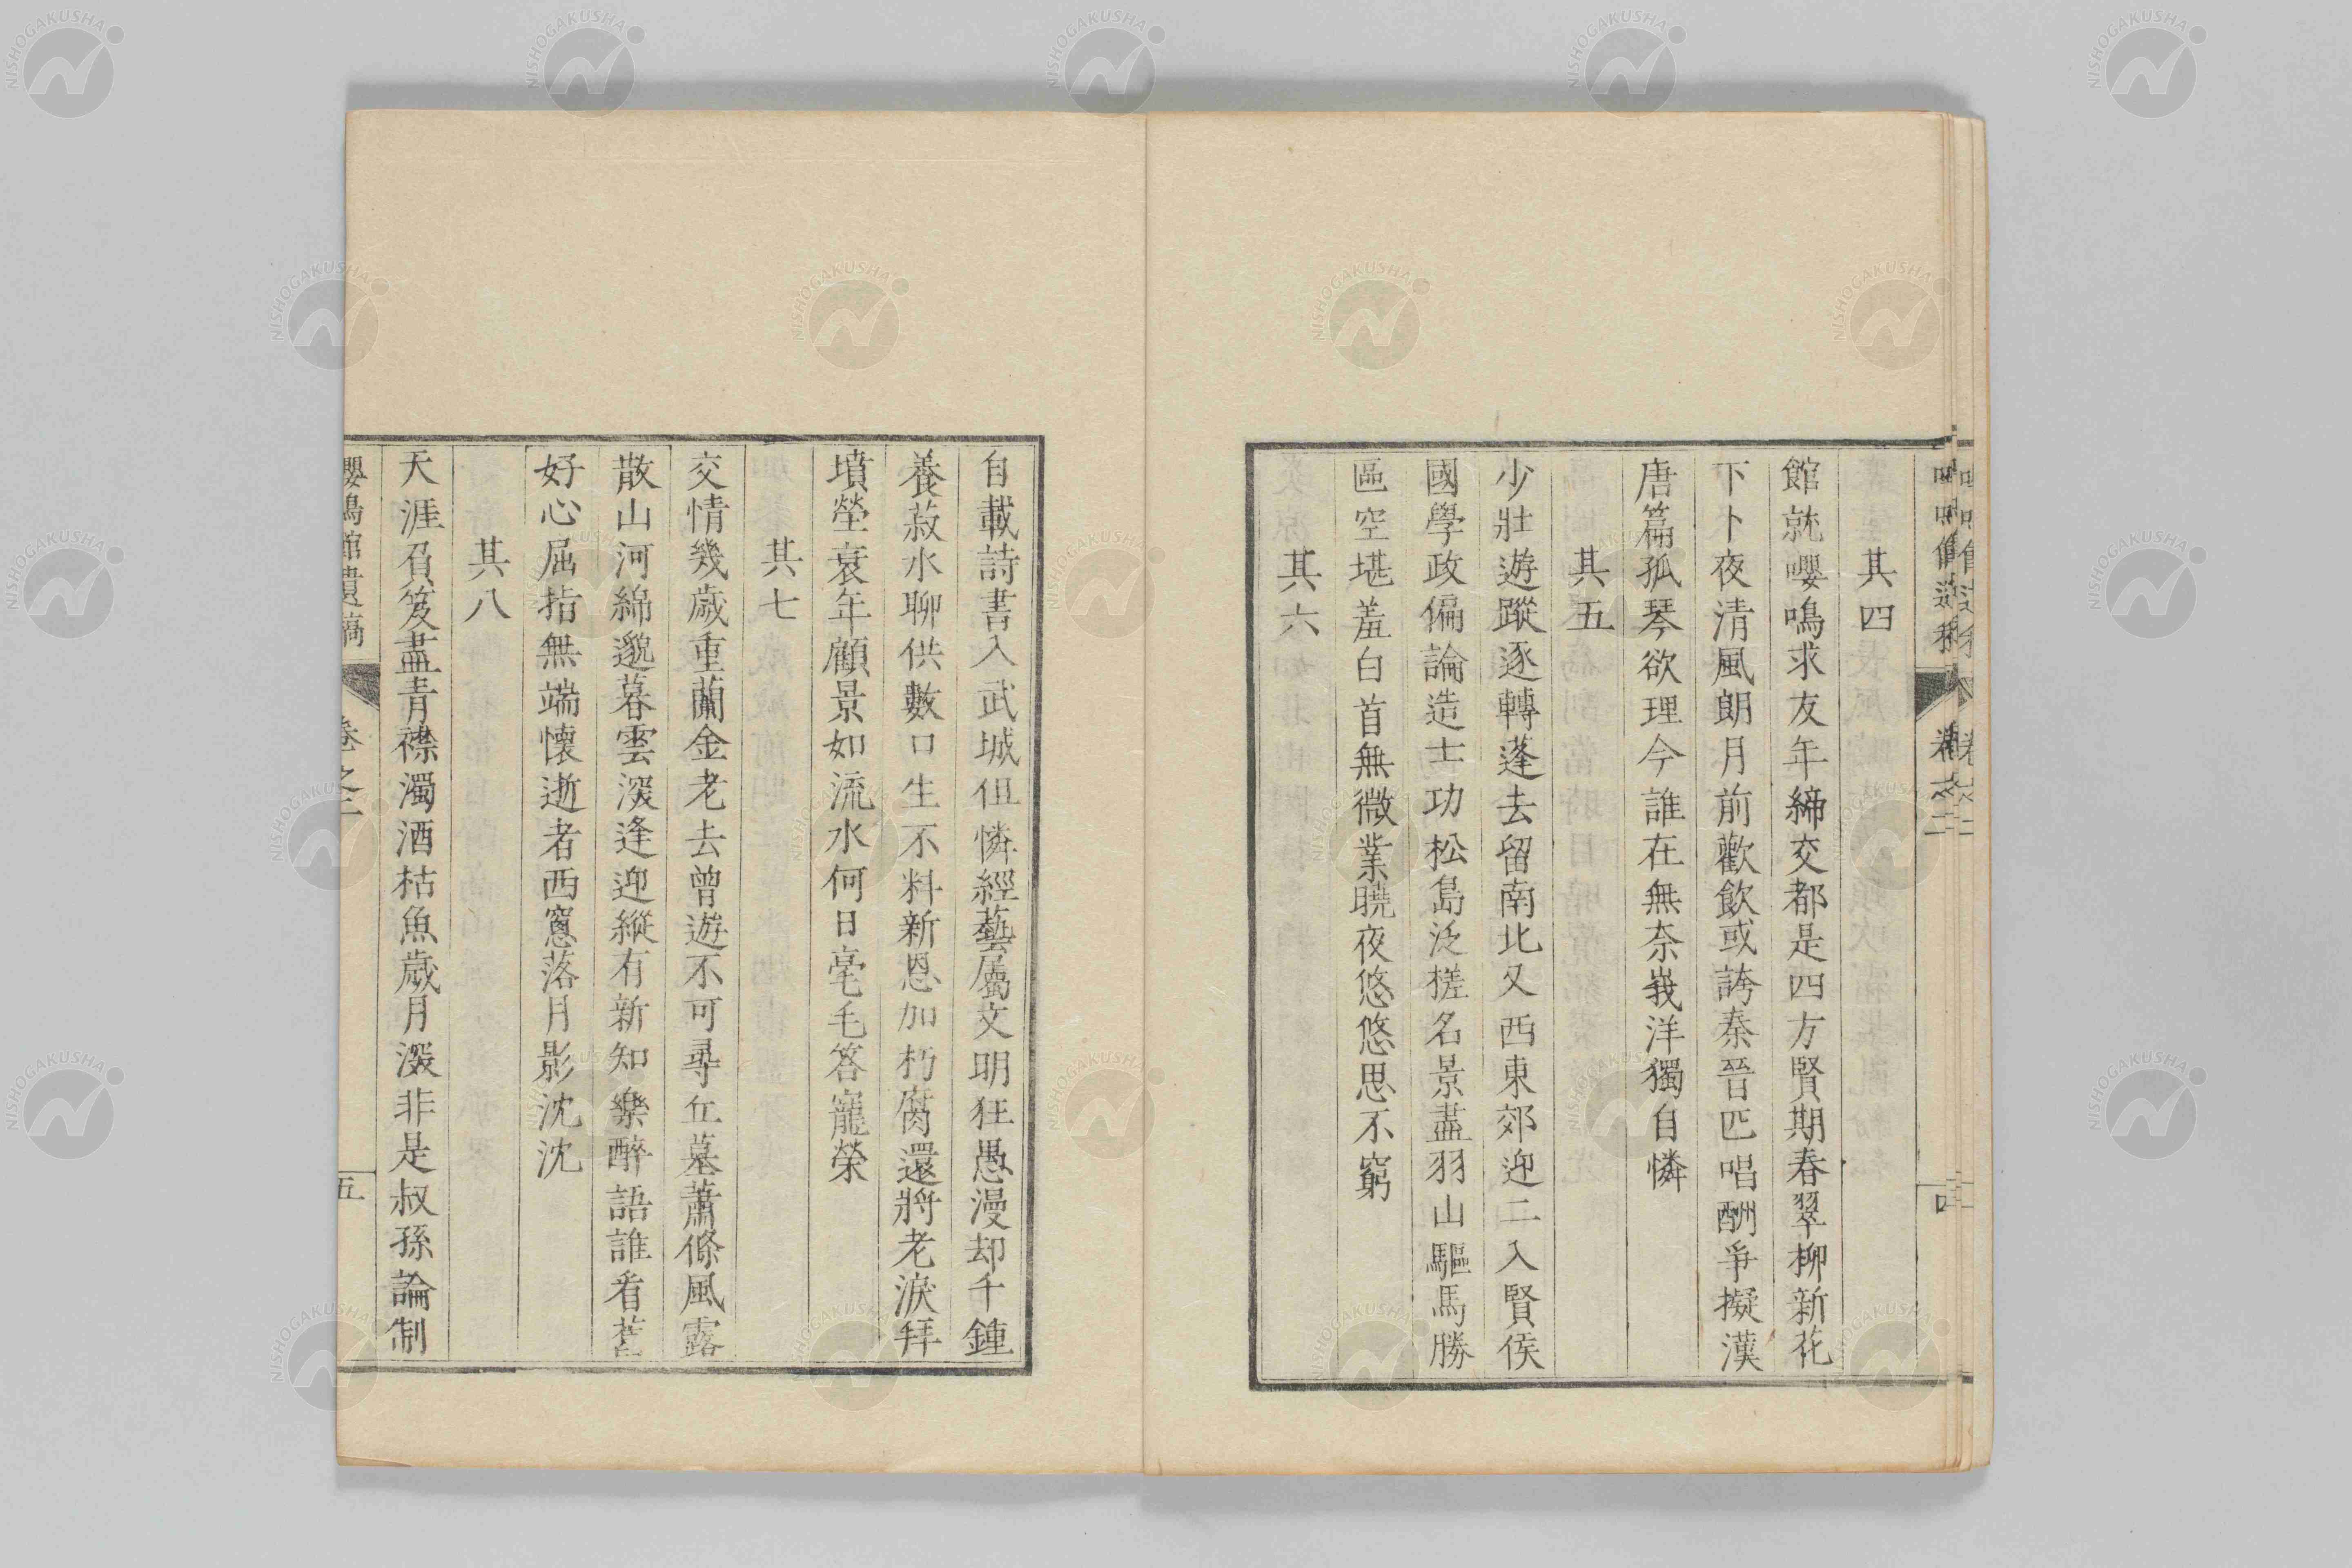 其四
館就嚶鳴求友年締交都是四方賢期春翠柳新花
下卜夜清風朗月前歡飲或誇秦晉匹唱酬爭擬漢
唐篇孤琴欲理今誰在無奈峩洋獨自憐
其五
少壯遊蹤逐轉蓬去留南北又西東郊迎二入賢侯
國學政偏論造士功松島泛槎名景盡羽山驅馬勝
區空堪羞白首無微業曉夜悠悠思不窮
其六
自載詩書入武城伹憐經藝屬文明狂愚漫却千鍾
養菽水聊供數口生不料新恩加朽腐還將老淚拜
墳塋衰年顧景如流水何日毫毛答寵榮
其七
交情幾歲重蘭金老去曾遊不可尋丘墓蕭條風露
散山河綿邈暮雲深逢迎縱有新知樂醉語誰看舊
好心屈指無端懷逝者西窻落月影沈沈
其八
天涯負笈盡青襟濁酒枯魚歲月深非是叔孫論制
嚶鳴館遺稿 卷之二 五
NISHOGAKUSHA